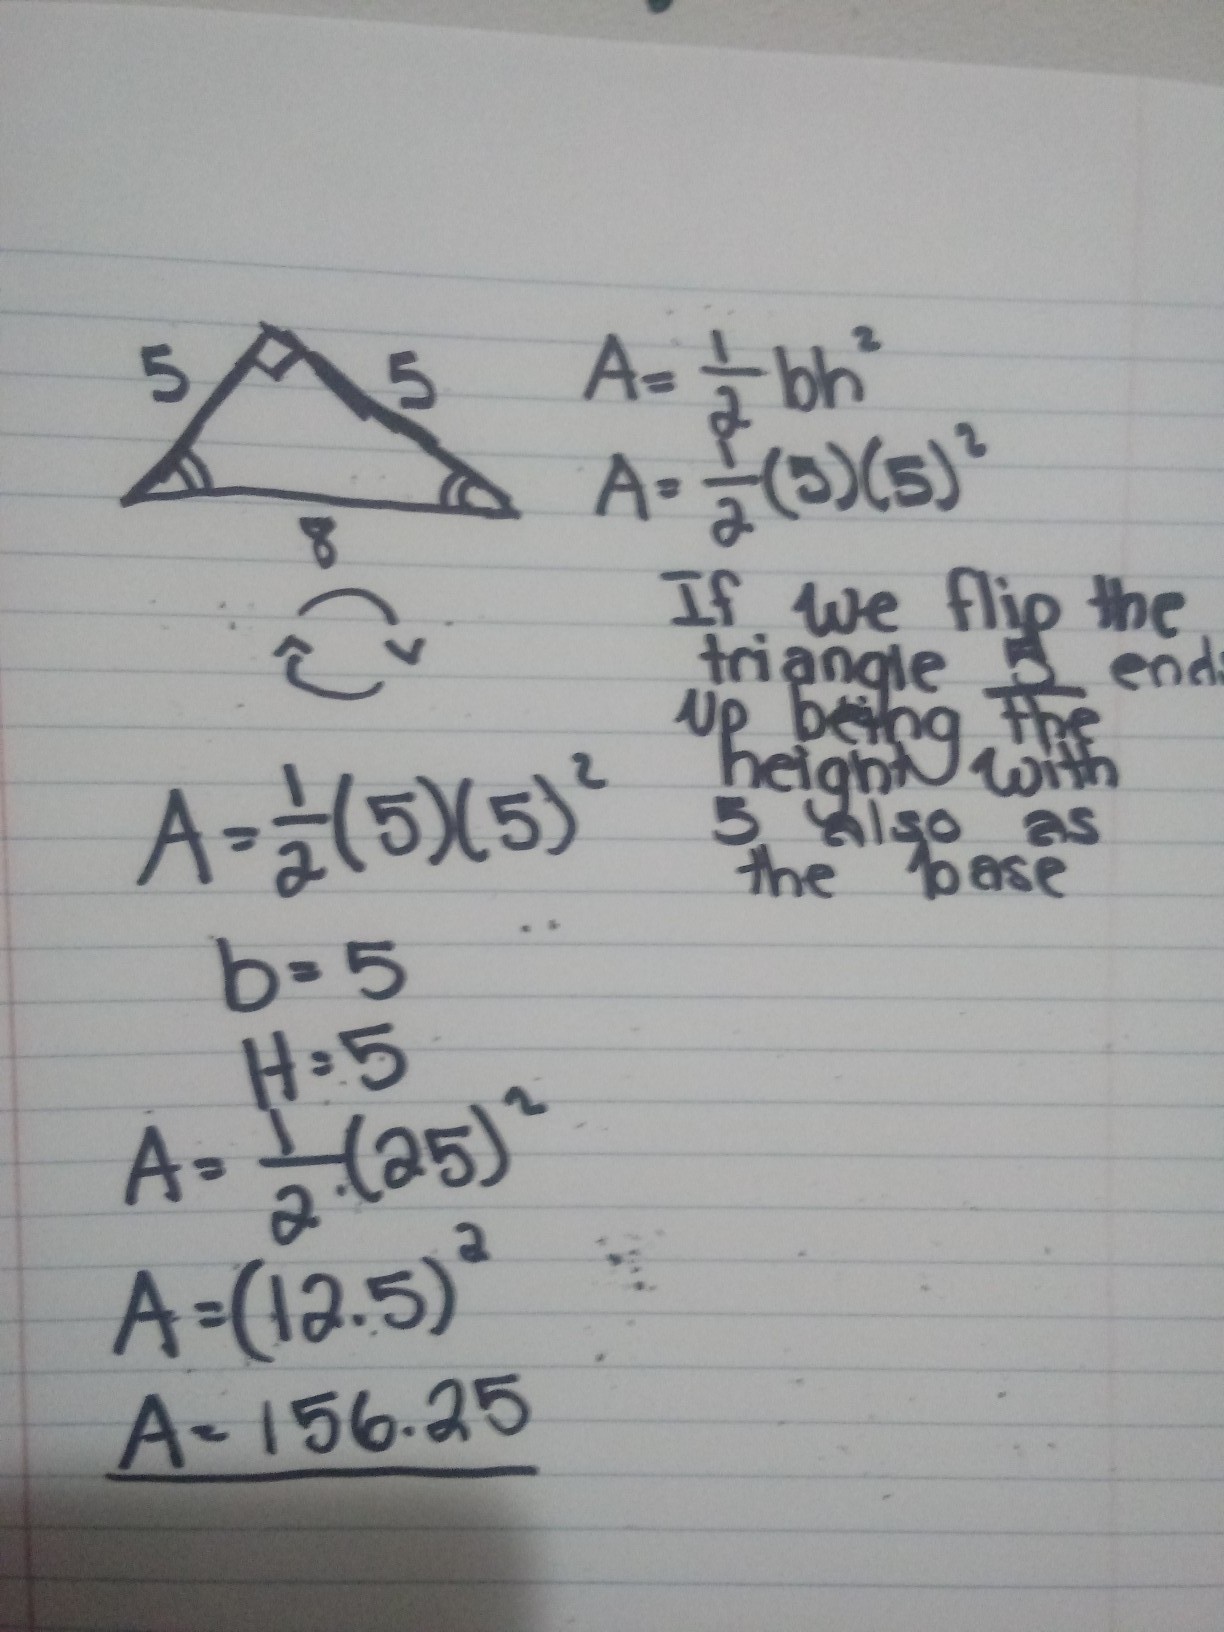 5 5
8
A = 1/2 bh²
A = 1/2 (5)(5)²
If we flip the
triangle 5 end
up being the
height with
5 also as
the base
A = 1/2 (5)(5)²
b = 5
H = 5
A = 1/2 · (25)²
A = (12.5)²
A = 156.25